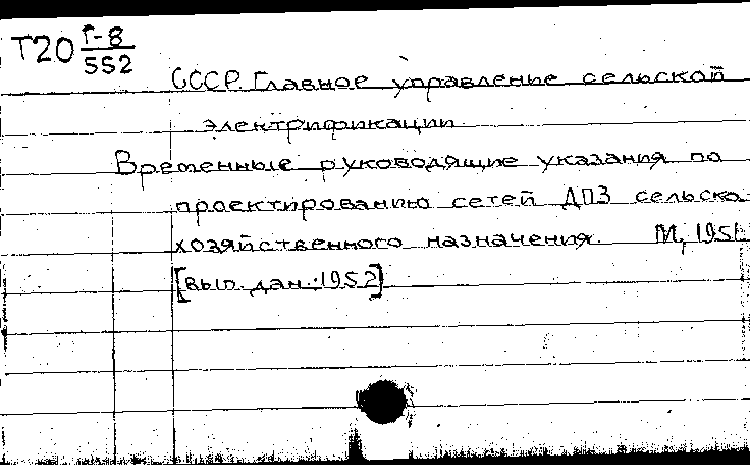 Т20 Г-8
552
СССР. Главное управление сельской
электрификации.
Временные руководящие указания по
проектированию сетей ДПЗ сельско-
хозяйственного назначения. М., 1951
[вып. дан.: 1952]